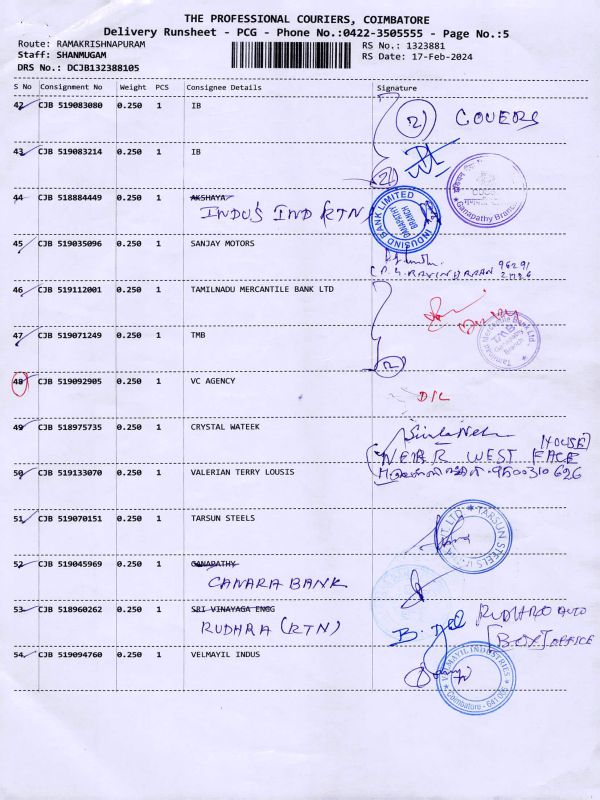 THE PROFESSIONAL COURIERS, COIMBATORE
Delivery Runsheet - PCG - Phone No.:0422-3505555 - Page No.:5
Route: RAMAKRISHNAPURAM
RS No.: 1323881
Staff: SHANMUGAM
RS Date: 17-Feb-2024
DRS No.: DCJB132388105
S No Consignment No Weight PCS Consignee Details Signature
42 CJB 519083080 0.250 1 IB
2) COVERS
43 CJB 519083214 0.250 1 IB
2)
Ganapathy Branch
44 CJB 518884449 0.250 1 AKSHAYA
INDUS IND RTN
INDUSIND BANK LIMITED
GANAPATHY BRANCH
45 CJB 519035096 0.250 1 SANJAY MOTORS
46 CJB 519112001 0.250 1 TAMILNADU MERCANTILE BANK LTD
Tamilnad Mercantile Bank Ltd.
TMB
Ganapathy Branch
47 CJB 519071249 0.250 1 TMB
2)
48 CJB 519092905 0.250 1 VC AGENCY
D/L
49 CJB 518975735 0.250 1 CRYSTAL WATEEK
[HOUSE]
WEST FACE
50 CJB 519133070 0.250 1 VALERIAN TERRY LOUSIS
9500310626
51 CJB 519070151 0.250 1 TARSUN STEELS
TARSUN STEELS PVT LTD
52 CJB 519045969 0.250 1 GANAPATHY
CANARA BANK
53 CJB 518960262 0.250 1 SRI VINAYAGA ENGG
RUDHRA (RTN)
RUDHRO AUTO
[BOX] OFFICE
54 CJB 519094760 0.250 1 VELMAYIL INDUS
VELMAYIL INDUSTRIES
Coimbatore - 641 006